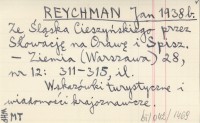 REYCHMAN Jan 1938 b.
Ze Śląska Cieszyńskiego przez
Słowację na Orawę i Spisz.
— Ziemia (Warszawa) 28,
nr 12: 311-315, il.
Wskazówki turystyczne i
wiadomości krajoznawcze
MT